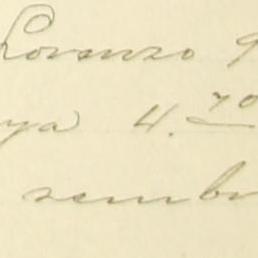 Lorenzo 9
ya 4. 70
sembr